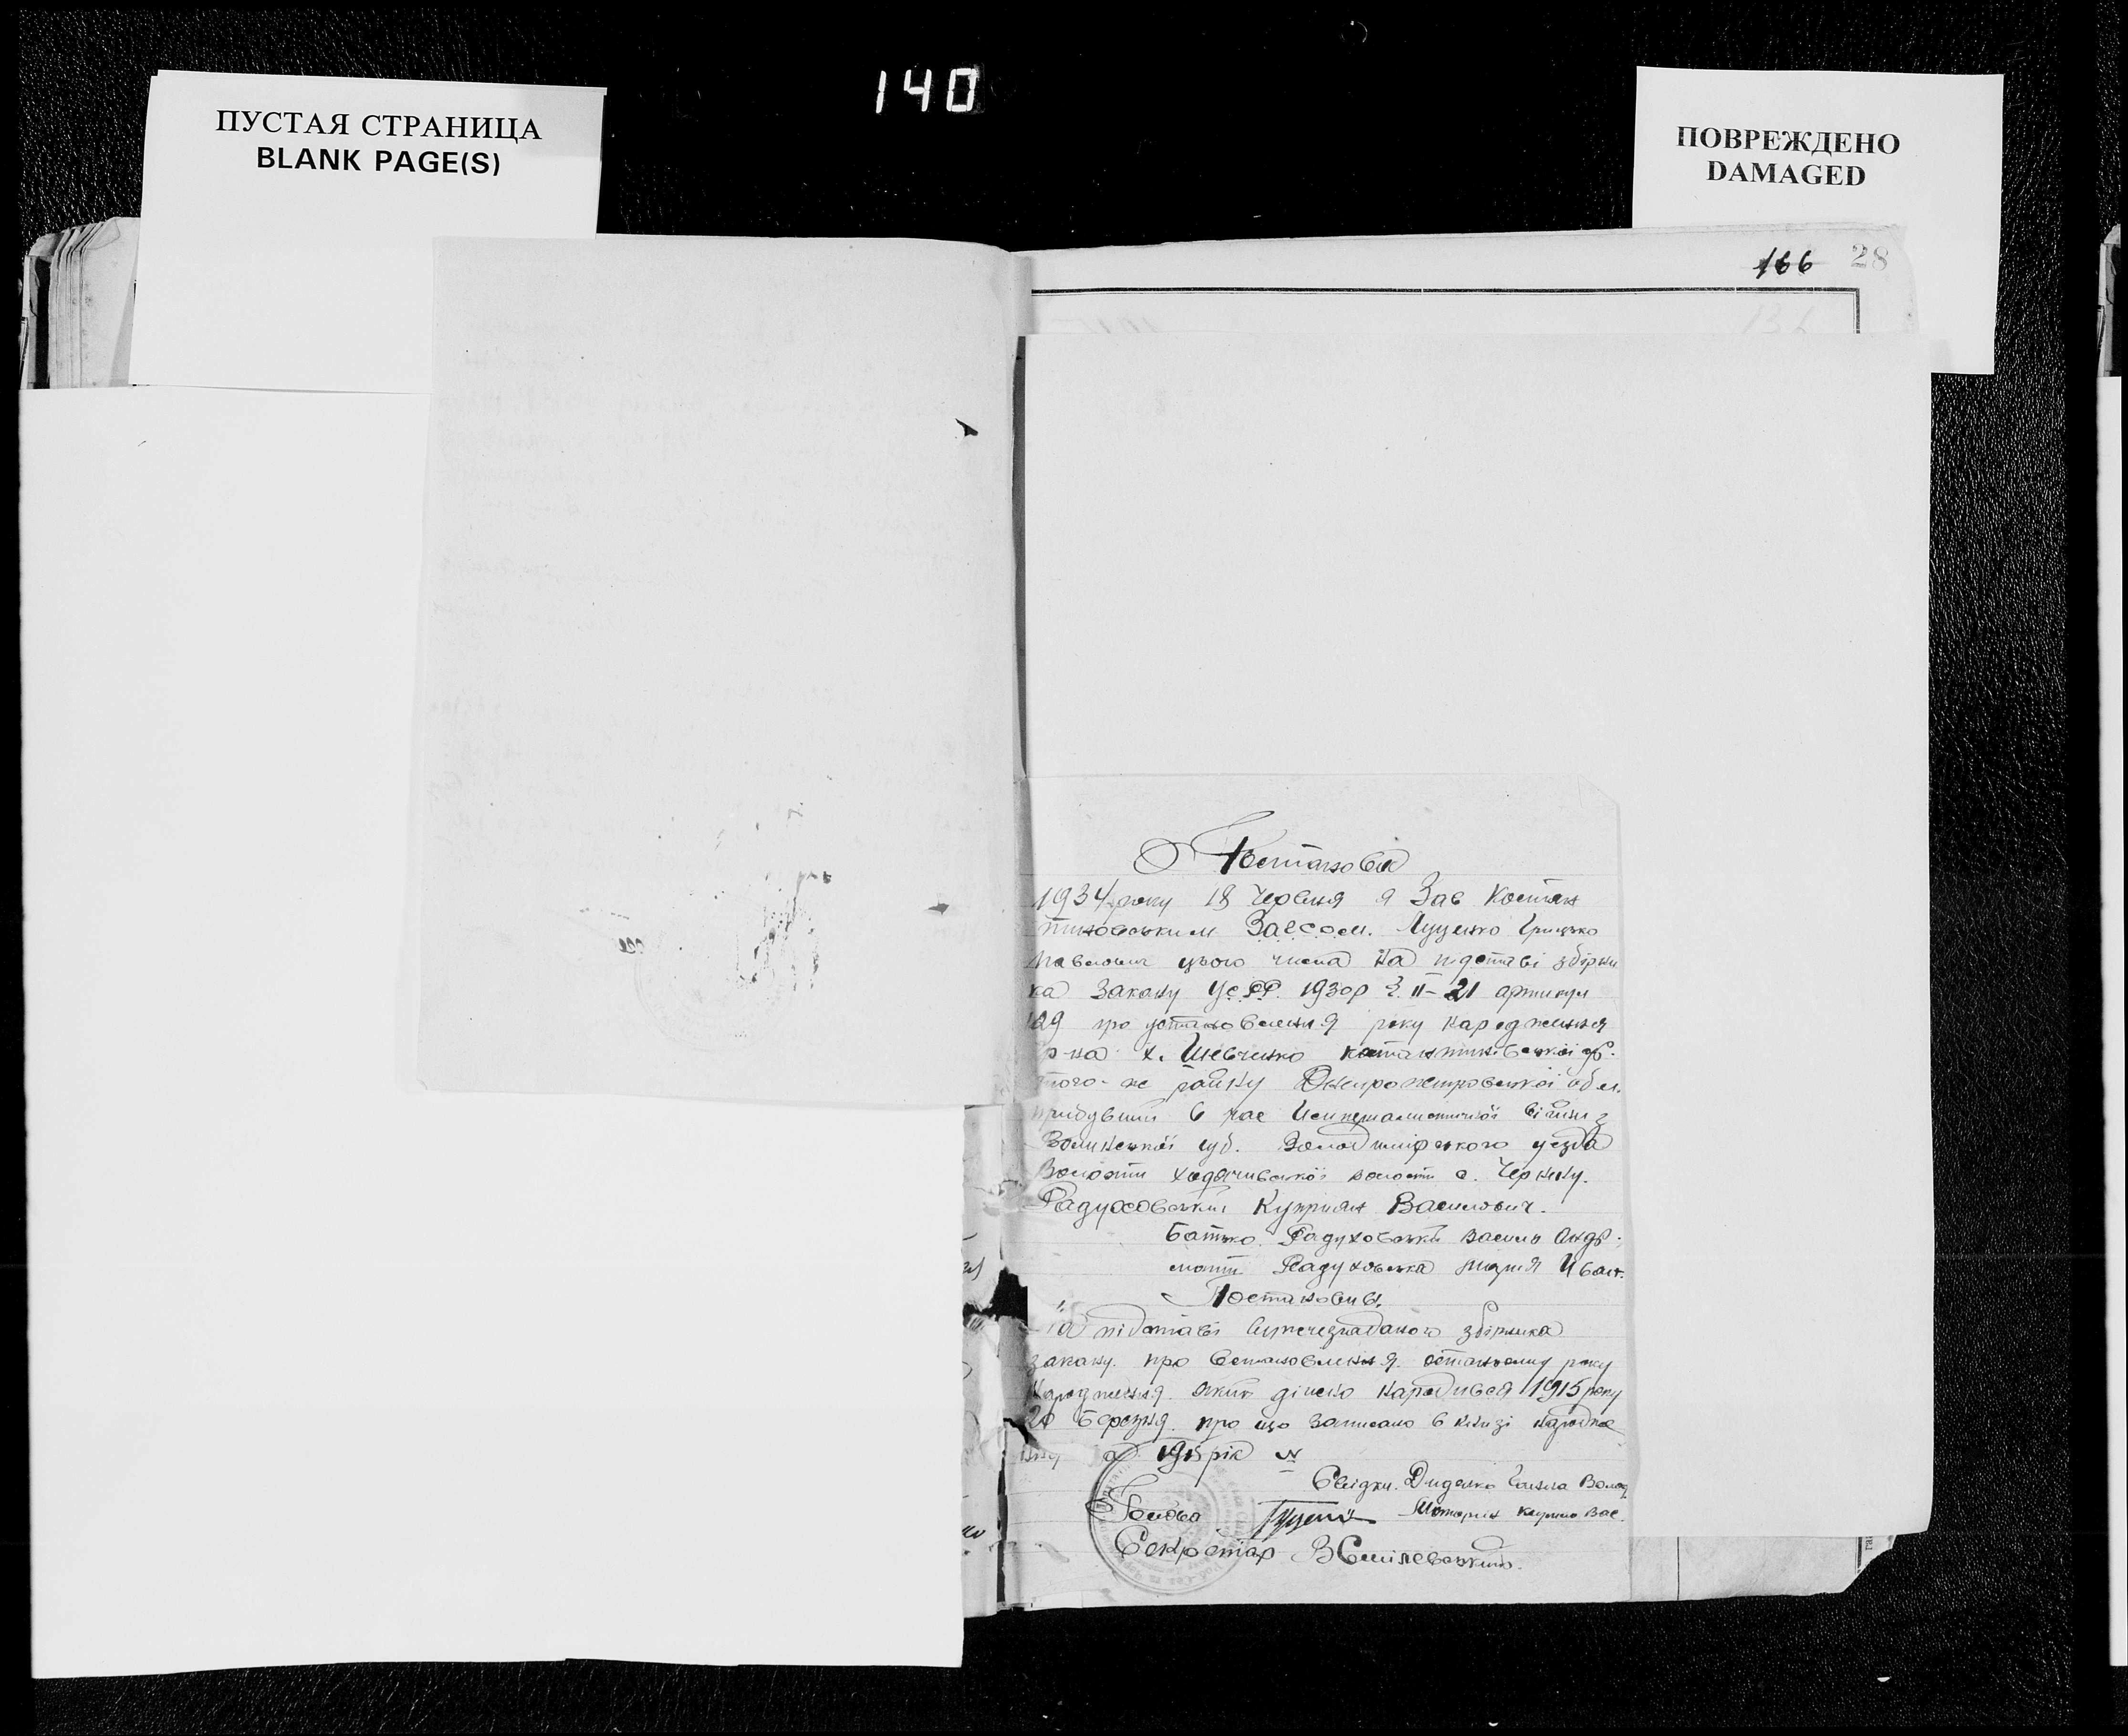 140
ПУСТАЯ СТРАНИЦА
BLANK PAGE(S)
ПОВРЕЖДЕНО
DAMAGED
166 28
Постанова
1934 року 18 Червня я Зав Костян
тиновським Загсом. Луценко Грицько
цього числа на підставі збірни
ка Закону УСРР. 1930р №. 11-21 артикул
129 про установлення року народження
р-на х. Шевченко
того-ж району Дніпропетровської обл.
прибувший в час Імперіалистичної війни з
Волинської губ. Володимірського уезда
Волости волости с. Чернку.
Радуховський Куприян Васильович.
Батько Радуховський Василь Андр.
мати Радуховська Мария Иван.
Постановив.
На підставі вищезгаданого збірника
закону про встановлення року
народження який дійсно народився 1915 року
20 березня про що записано в книзі народже
ння за 1915 рік №
Свідки. Диденко Волод
Вас.
Голова
Секретар